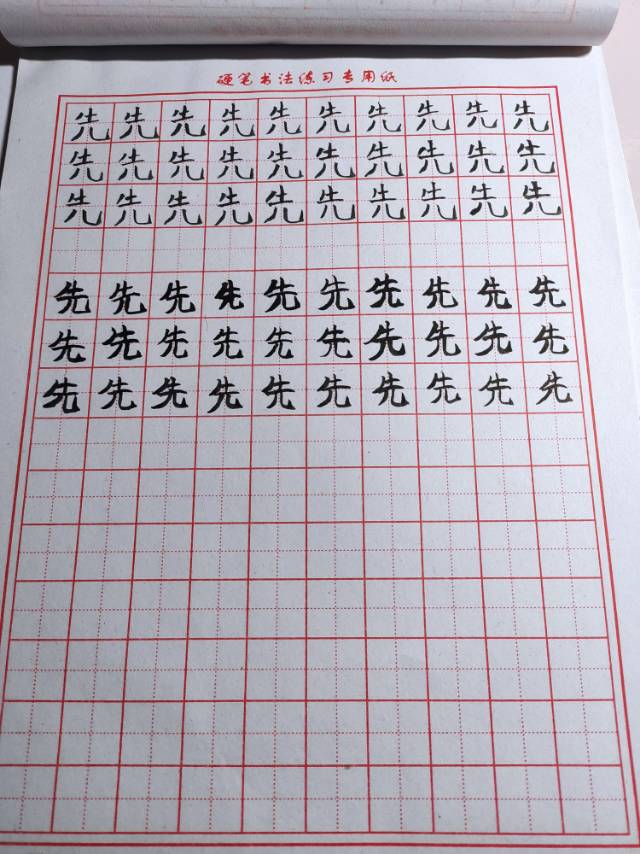 硬笔书法练习专用纸
先先先先先先先先先先
先先先先先先先先先先
先先先先先先先先先先
先先先先先先先先先先
先先先先先先先先先先
先先先先先先先先先先